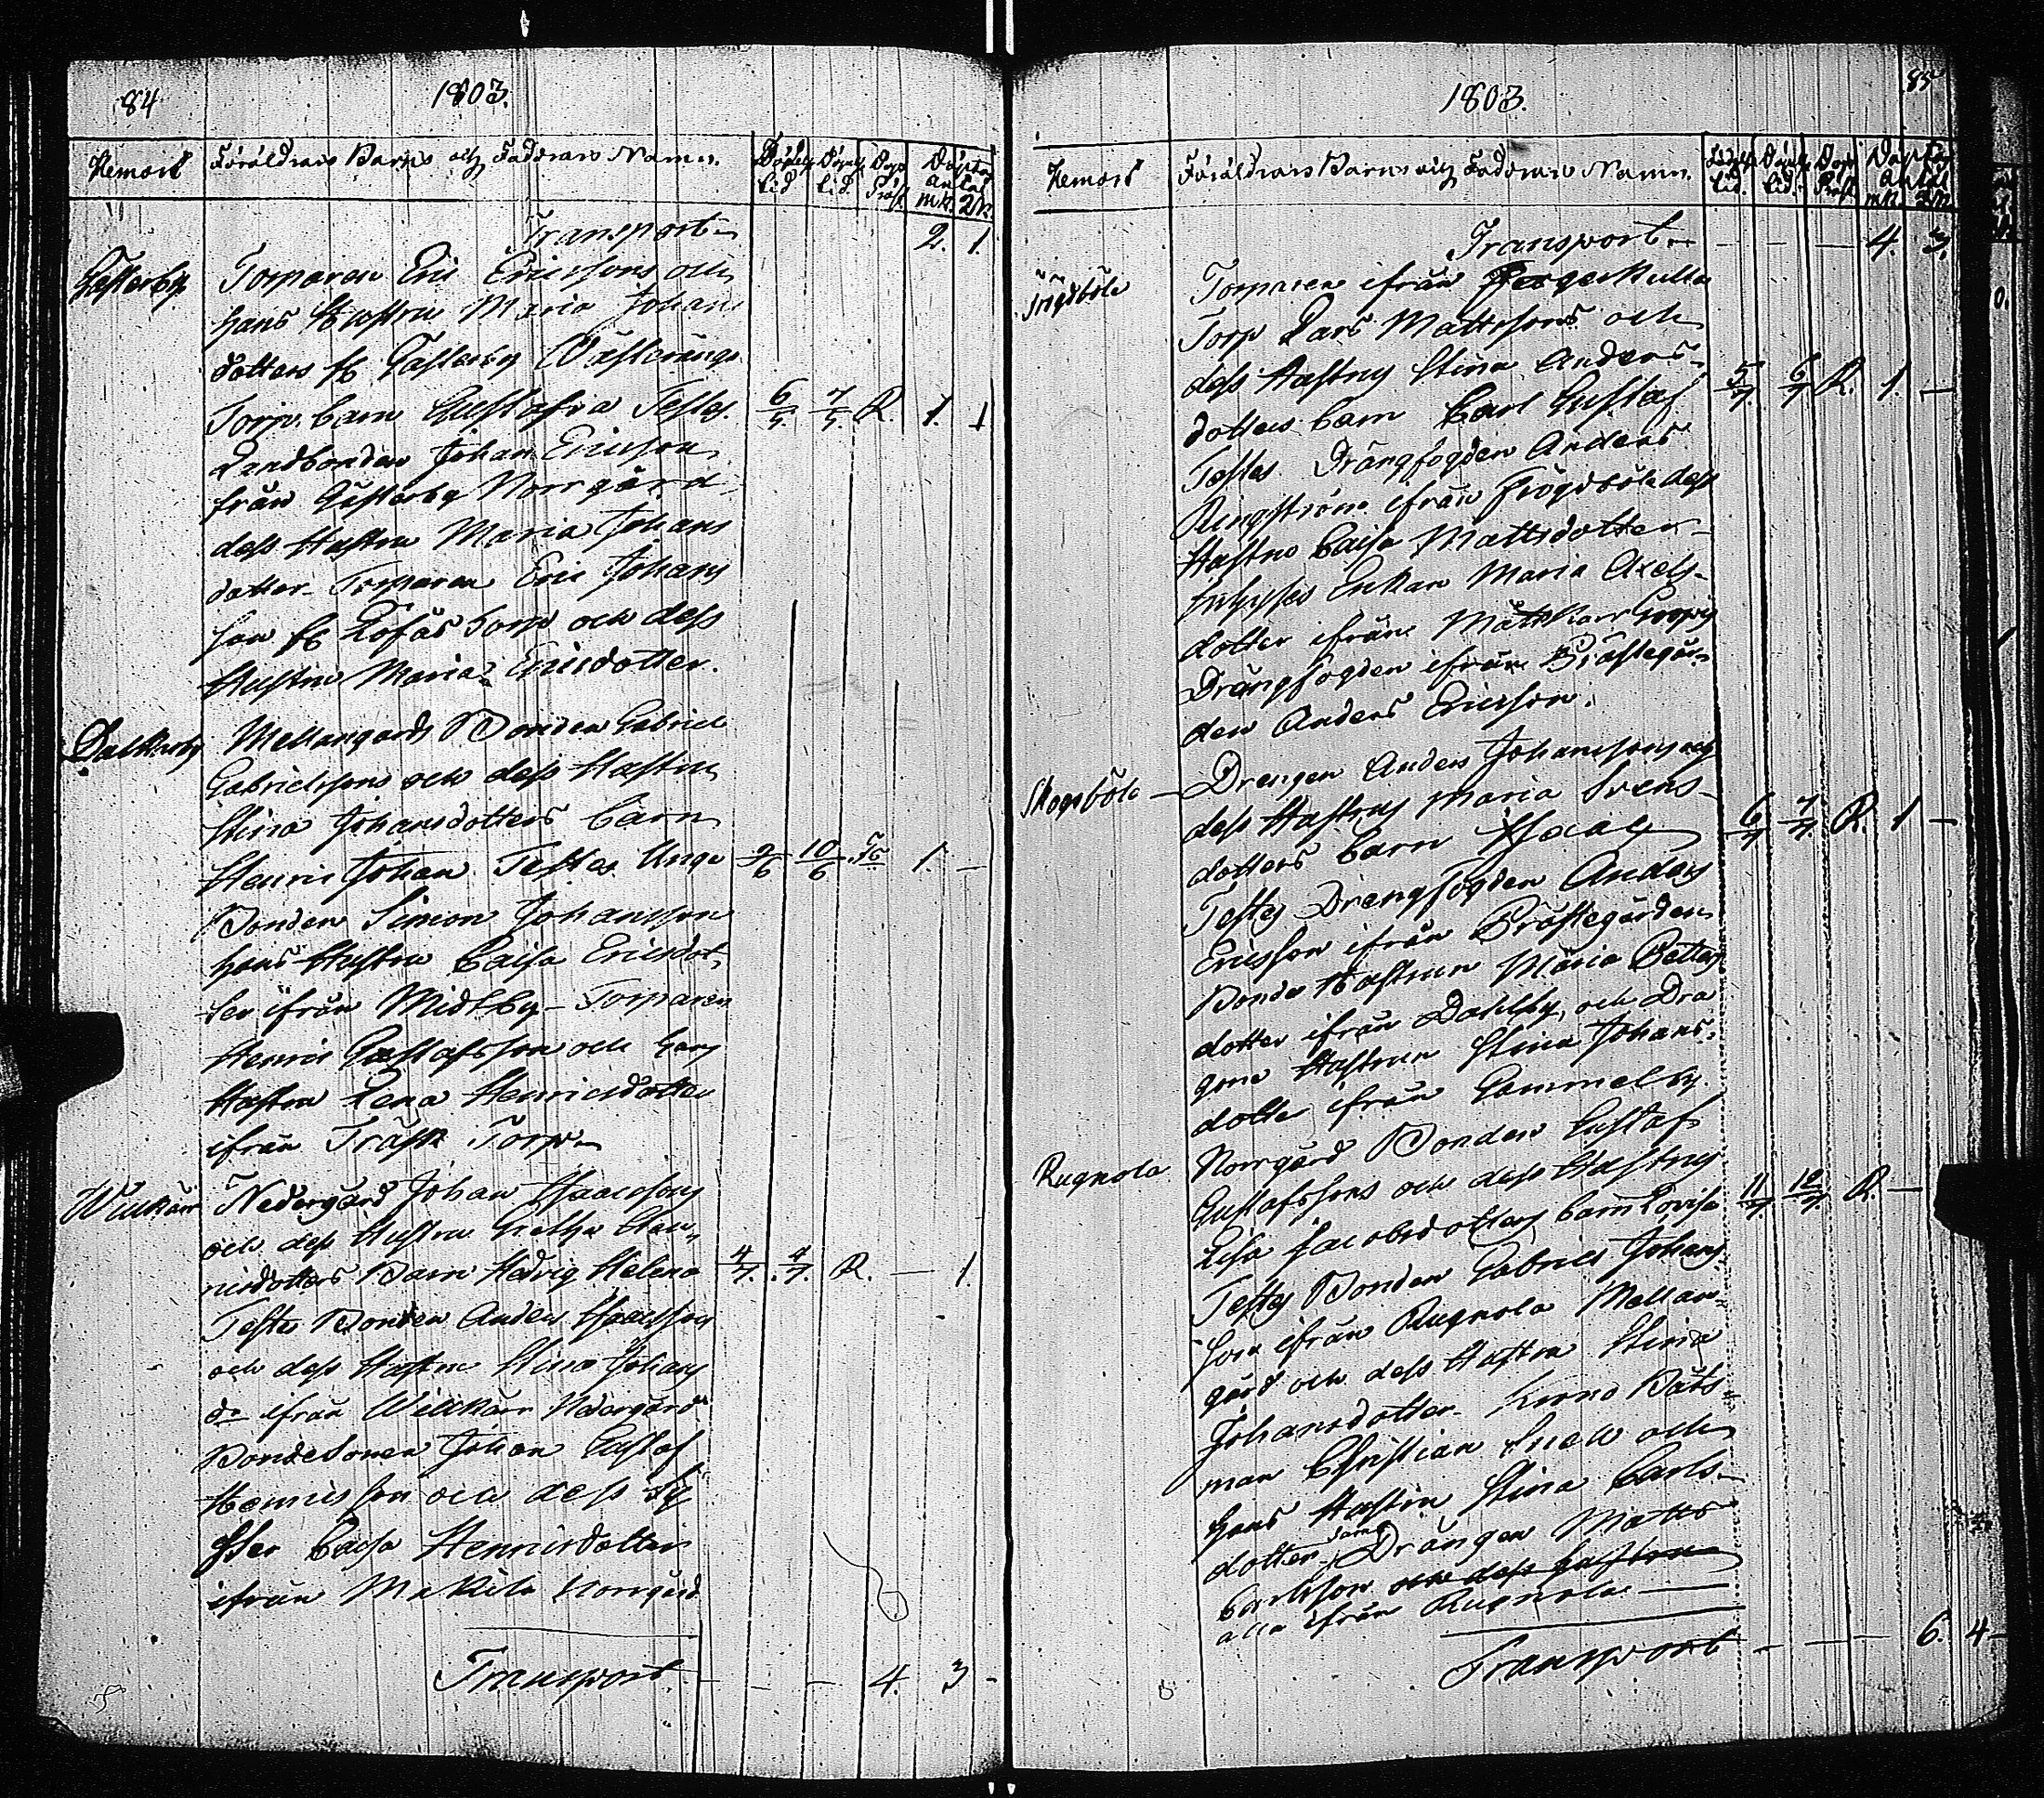 84
1803.
Hemort Föräldrars Barns och Faddrars Namn. Födelse tid Döpelse tid. Dops Präst Döptas antal mk. qk.
Transport 2. 1
Gästerby Torparen Eric Ericssons och
hans Hustru Maria Johans
dotters fr Gästerby Westerängs
Torp. barn Gustafva Testes. 6/5. 7/5. R. 1. 1
Landbonden Johan Ericson
från Gästerby Norrgård
dess Hustru Maria Johans
dotter Torparen Eric Johans
son fr Löfås Torp och dess
Hustru Maria Ericsdotter.
Dalkarby Mellangårds Bonden Gabriel
Gabrielssons och dess Hustru
Stina Johansdotters barn
Henric Johan Testes Unga 9/6 10/6 1. —
Bonden Simon Johansson
hans Hustru Caisa Ericsdot
ter ifrån Midtby Torparen
Henric Gustafsson och hans
Hustru Lena Henricsdotter
ifrån Träsk Torp
Willkärr Nedergård Johan Isaacssons
och dess Hustru Gretha Hen
ricsdotters Barn Hedvig Helena 4/7. 4/7. R. — 1.
Testes Bonden Anders Isacsson
och dess Hustru Stina Johans
dr ifrån Willkärr Nedergård
Bondesonen Johan Gustaf
Henricsson och dess Sy
ster Caisa Henricsdotter
ifrån Makila Norrgård
Transport. — — — 4. 3 -
85
1803.
Hemort Föräldrars Barns och Faddrars Namn. Födelse tid. Döpelse tid. Dops Präst Döptas antal mk. qk.
Transport — — — 4. 3.
Frögdböle Torparen ifrån
Torp Lars Mattssons och
dess Hustrus Stina Anders
dotters barn Carl Gustaf 5/7. 6/7 R. 1. —
Testes Drängfogden Anders
Ringström ifrån Frögdböle dess
Hustru Caisa Mattsdotter
Enkan Maria Axels
dotter ifrån
Drängfogden ifrån Prästegår
den Anders Ericsson.
Skogsböle — Drengen Anders Johanssons och
dess Hustrus Maria Svens
dotters barn Isaac 6/7 7/7. R. 1 —
Testes Drengfogden Anders
Ericsson ifrån Prästegården
Bonde Hustrun Maria Petters
dotter ifrån Dahlby, och Drä
gens Hustrun Stina Johans
dotter ifrån Gammelby.
Rugnola Norrgård Bonden Gustaf
Gustafssons och dess Hustrus
Lisa Jacobsdotters barn Lovisa 11/7. 12/7. R. —
Testes Bonden Gabriel Johans
son ifrån Rugnola Mellan
gård och dess Hustru Stina
Johansdotter. Krono Båts
man Christian Snell och
hans Hustru Stina Carls
dotter, samt Drängen Matts
Carlsson och dess hustru
alla ifrån Rugnola
Transport — — — 6. 4 -